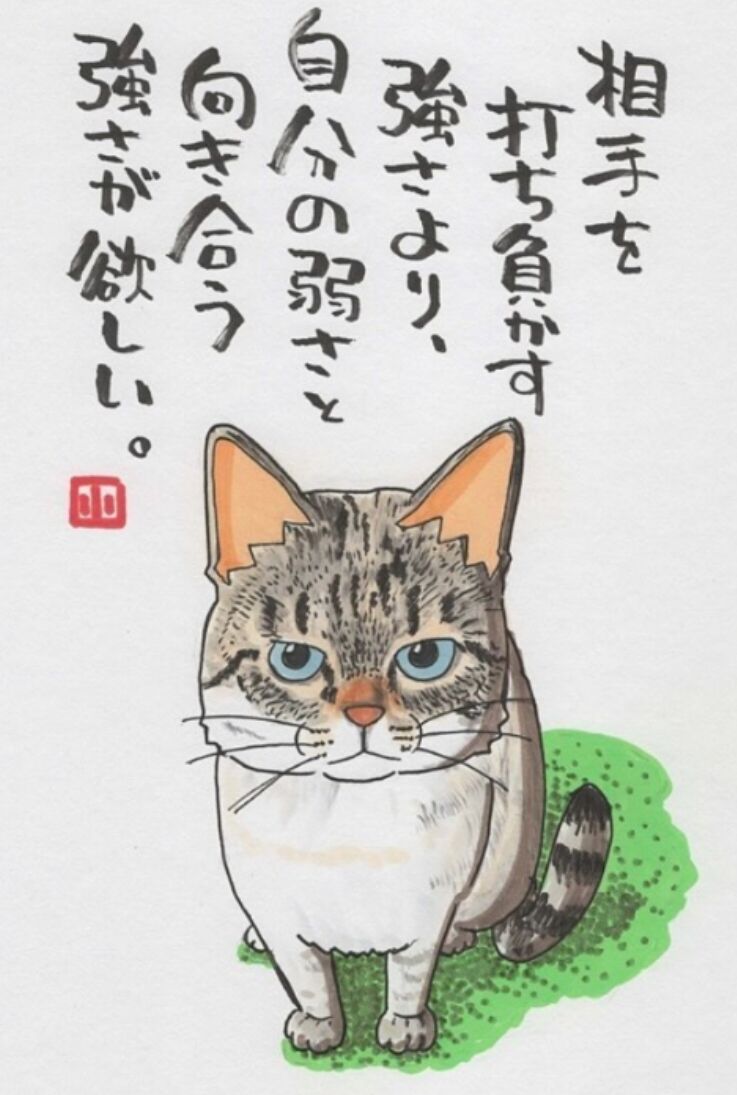 相手を
打ち負かす
強さより、
自分の弱さと
向き合う
強さが欲しい。